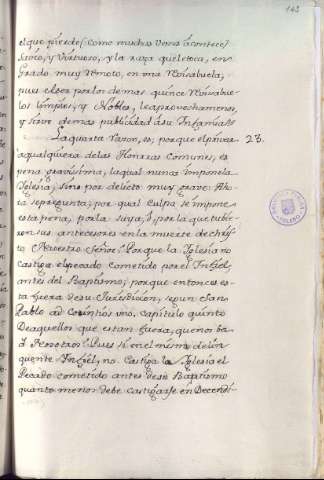 143
el que puede (como muchas veces acontece)
sano, y virtuoso, y la raza que le toca, en
grado muy remoto, en una Reuisabuela,
pues el ser por las demas quince Reuisabue-
los limpios, y Nobles, le aprovecha menos,
y sirve de mas publicidad a su Infamia.
La quarta razon, es; porque el privar 23.
a qualquiera de las Honrras Comunes, es
pena gravissima, la qual nunca impone la
Iglesia, sino por delicto muy grave: Aho-
ra se pregunta, por qual culpa se impone
esta pena, por la suya, ò, por la que tubie-
ron sus antecesores en la muerte de chris-
to Nuestro Señor? Porque la Iglesia no
Castiga el pecado cometido por el Infiel,
antes del Baptismo; porque entonces es-
ta fuera de su Jurisdicion, segun San
Pablo ad Corinthios uno, capitulo quinto
De aquellos que estan fuera, que nos ba-
à Nosotros? Pues si en el mismo delin-
quente Infiel, no Castiga la Iglesia el
Pecado cometido antes de su Baptismo
quanto menos debe castigarse en Decendi-
TOLEDO